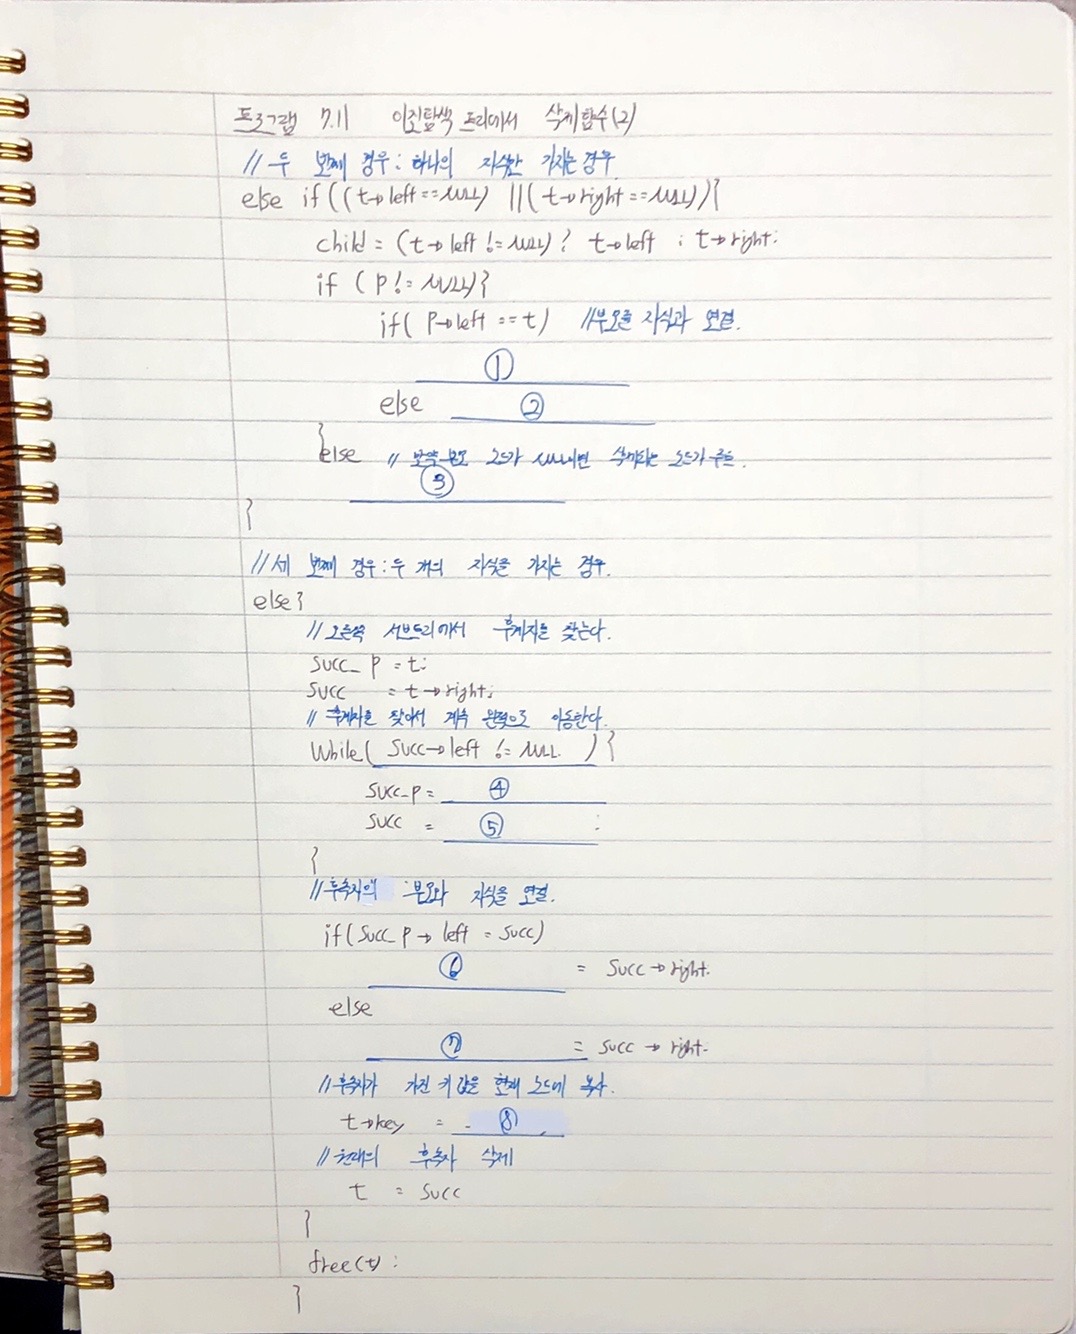 프로그램 7.11 이진탐색 트리에서 삭제함수(2)
// 두 번째 경우: 하나의 자식만 가지는 경우
else if((t→left==NULL) ||(t→right==NULL)){
child = (t→left != NULL)? t→left : t→right;
if (p!= NULL){
if( p→left ==t) //부모를 자식과 연결.
①
else ②
}
else // 만약 부모 노드가 NULL이면 삭제되는 노드가 루트.
③
}
//세 번째 경우: 두 개의 자식을 가지는 경우.
else{
// 오른쪽 서브트리에서 후계자를 찾는다.
succ_p = t;
succ = t→right;
// 후계자를 찾아서 계속 왼쪽으로 이동한다.
While( succ→left != NULL ){
succ_p = ④
succ = ⑤ ;
}
//후속자의 부모와 자식을 연결.
if(succ_p→left = succ)
⑥ = succ→right.
else
⑦ = succ→right.
//후속자가 가진 키 값을 현재 노드에 복사.
t→key = ⑧
//원래의 후속자 삭제
t = succ
}
free(t);
}